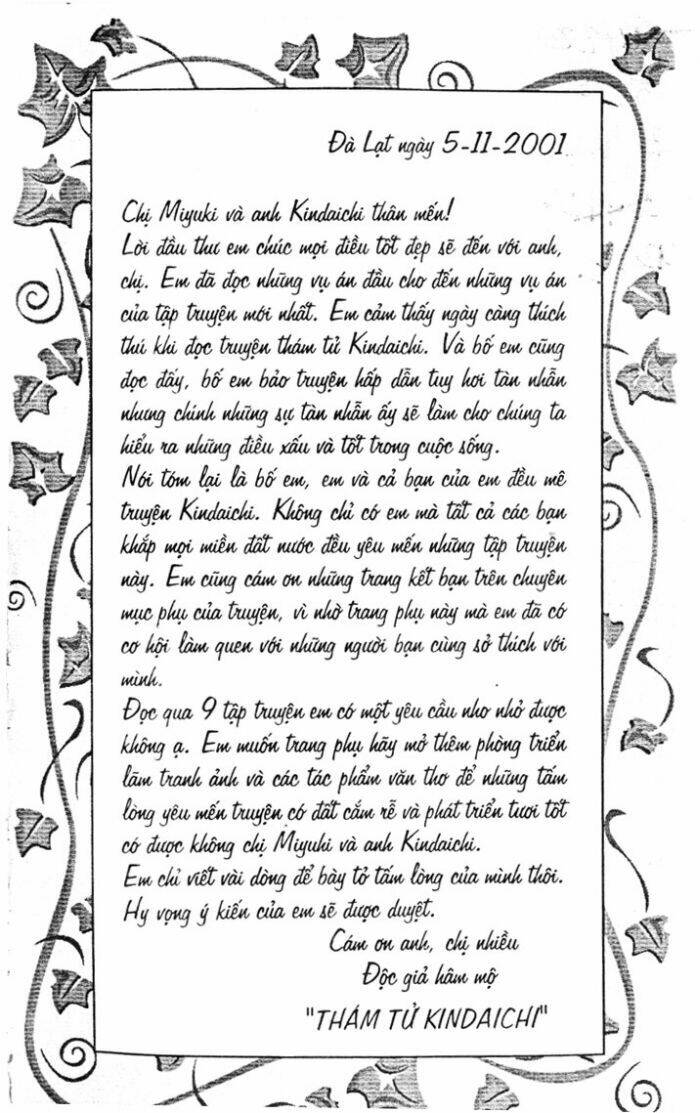 Đà Lạt ngày 5-11-2001
Chị Miyuki và anh Kindaichi thân mến!
Lời đầu thư em chúc mọi điều tốt đẹp sẽ đến với anh,
chị. Em đã đọc những vụ án đầu cho đến những vụ án
của tập truyện mới nhất. Em cảm thấy ngày càng thích
thú khi đọc truyện thám tử Kindaichi. Và bố em cũng
đọc đấy, bố em bảo truyện hấp dẫn tuy hơi tàn nhẫn
nhưng chính những sự tàn nhẫn ấy sẽ làm cho chúng ta
hiểu ra những điều xấu và tốt trong cuộc sống.
Nói tóm lại là bố em, em và cả bạn của em đều mê
truyện Kindaichi. Không chỉ có em mà tất cả các bạn
khắp mọi miền đất nước đều yêu mến những tập truyện
này. Em cũng cám ơn những trang kết bạn trên chuyên
mục phụ của truyện, vì nhờ trang phụ này mà em đã có
cơ hội làm quen với những người bạn cùng sở thích với
mình.
Đọc qua 9 tập truyện em có một yêu cầu nho nhỏ được
không ạ. Em muốn trang phụ hãy mở thêm phòng triển
lãm tranh ảnh và các tác phẩm văn thơ để những tấm
lòng yêu mến truyện có đất cắm rễ và phát triển tươi tốt
có được không chị Miyuhi và anh Kindaichi.
Em chỉ viết vài dòng để bày tỏ tấm lòng của mình thôi.
Hy vọng ý kiến của em sẽ được duyệt.
Cám ơn anh, chị nhiều
Độc giả hâm mộ
"THÁM TỬ KINDAICHI"